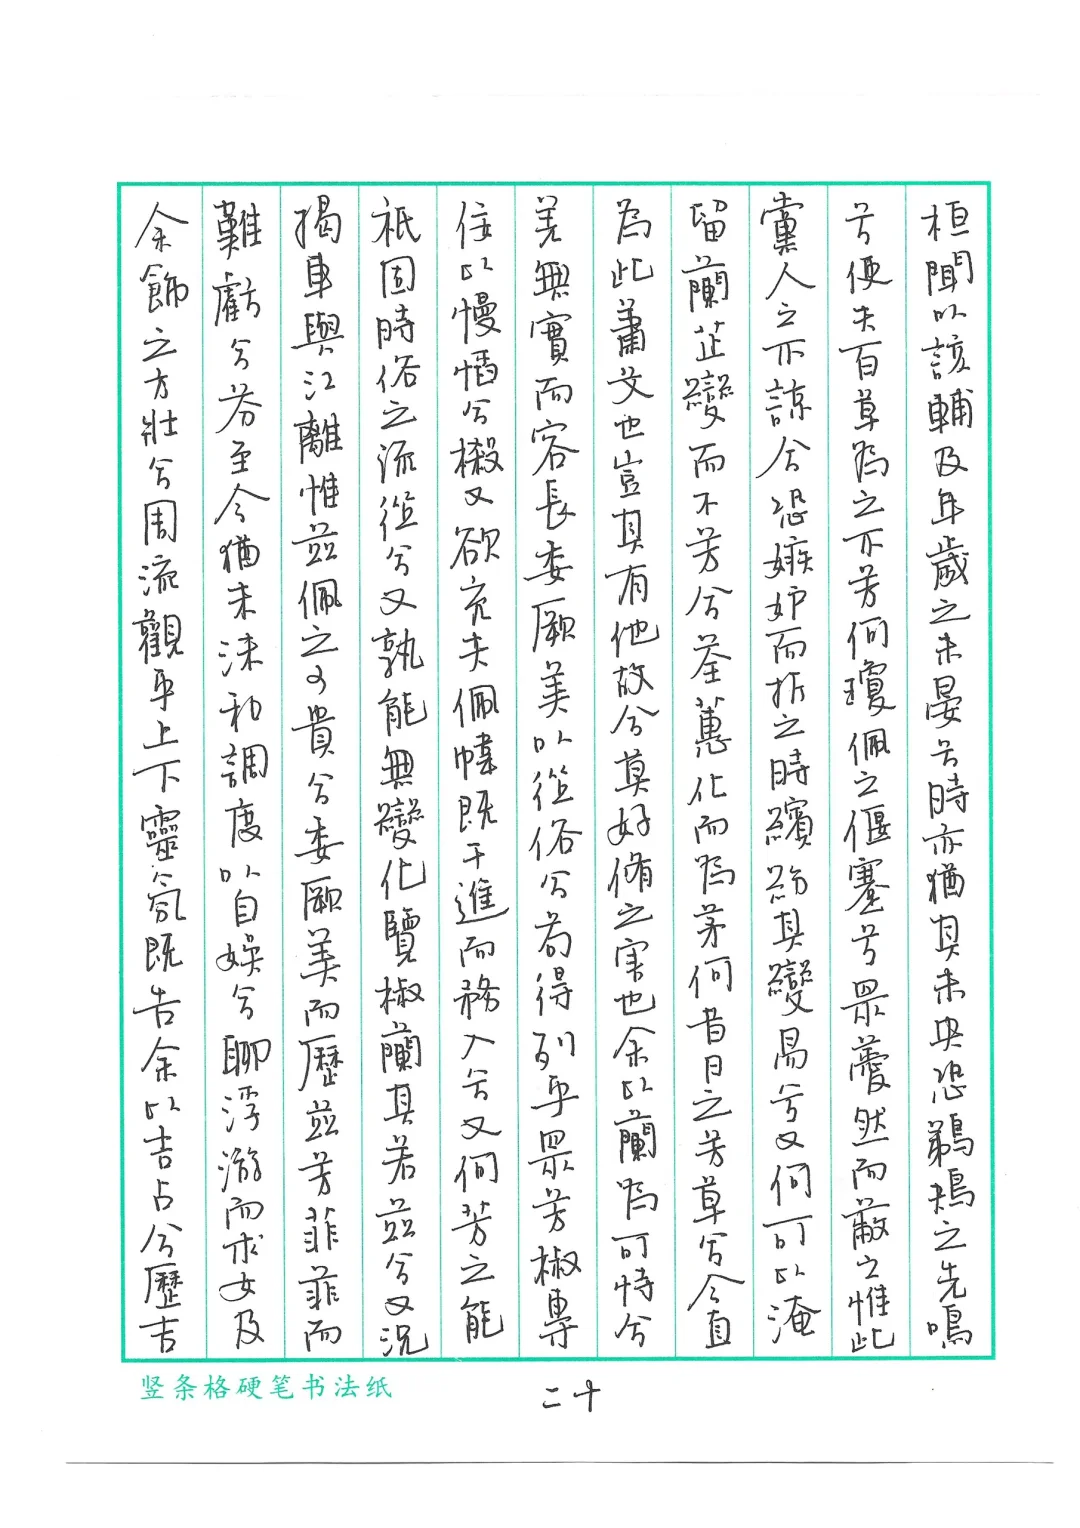 桓聞以該輔及年歲之未晏兮時亦猶其未央恐鵜鴂之先鳴
兮使夫百草為之不芳何瓊佩之偃蹇兮眾薆然而蔽之惟此
黨人之不諒兮恐嫉妒而折之時繽紛其變易兮又何可以淹
留蘭芷變而不芳兮荃蕙化而為茅何昔日之芳草兮今直
為此蕭艾也豈其有他故兮莫好脩之害也余以蘭為可恃兮
羌無實而容長委厥美以從俗兮苟得列乎眾芳椒專
佞以慢慆兮樧又欲充夫佩幃既干進而務入兮又何芳之能
祗固時俗之流從兮又孰能無變化覽椒蘭其若茲兮又況
揭車與江離惟茲佩之可貴兮委厥美而歷茲芳菲菲而
難虧兮芬至今猶未沬和調度以自娛兮聊浮游而求女及
余飾之方壯兮周流觀乎上下靈氛既告余以吉占兮歷吉
竖条格硬笔书法纸
二十